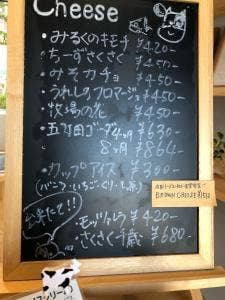 Cheese
・みるくのキモチ ¥420-
・ちーずさくさく ¥450-
・みそカチョ ¥450-
・うれしのフロマージュ ¥450-
・牧場の花 ¥450-
・五町田ゴーダ 4ヶ月 ¥630-
8ヶ月 ¥864-
・カップアイス ¥300-
(バニラ・いちご・
出来たて!!
モッツァレラ ¥420-
さくさく千歳 ¥680-